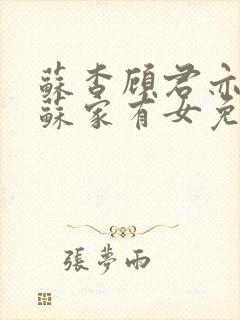 蘇杏顧君亦
蘇家有女兇
張夢雨